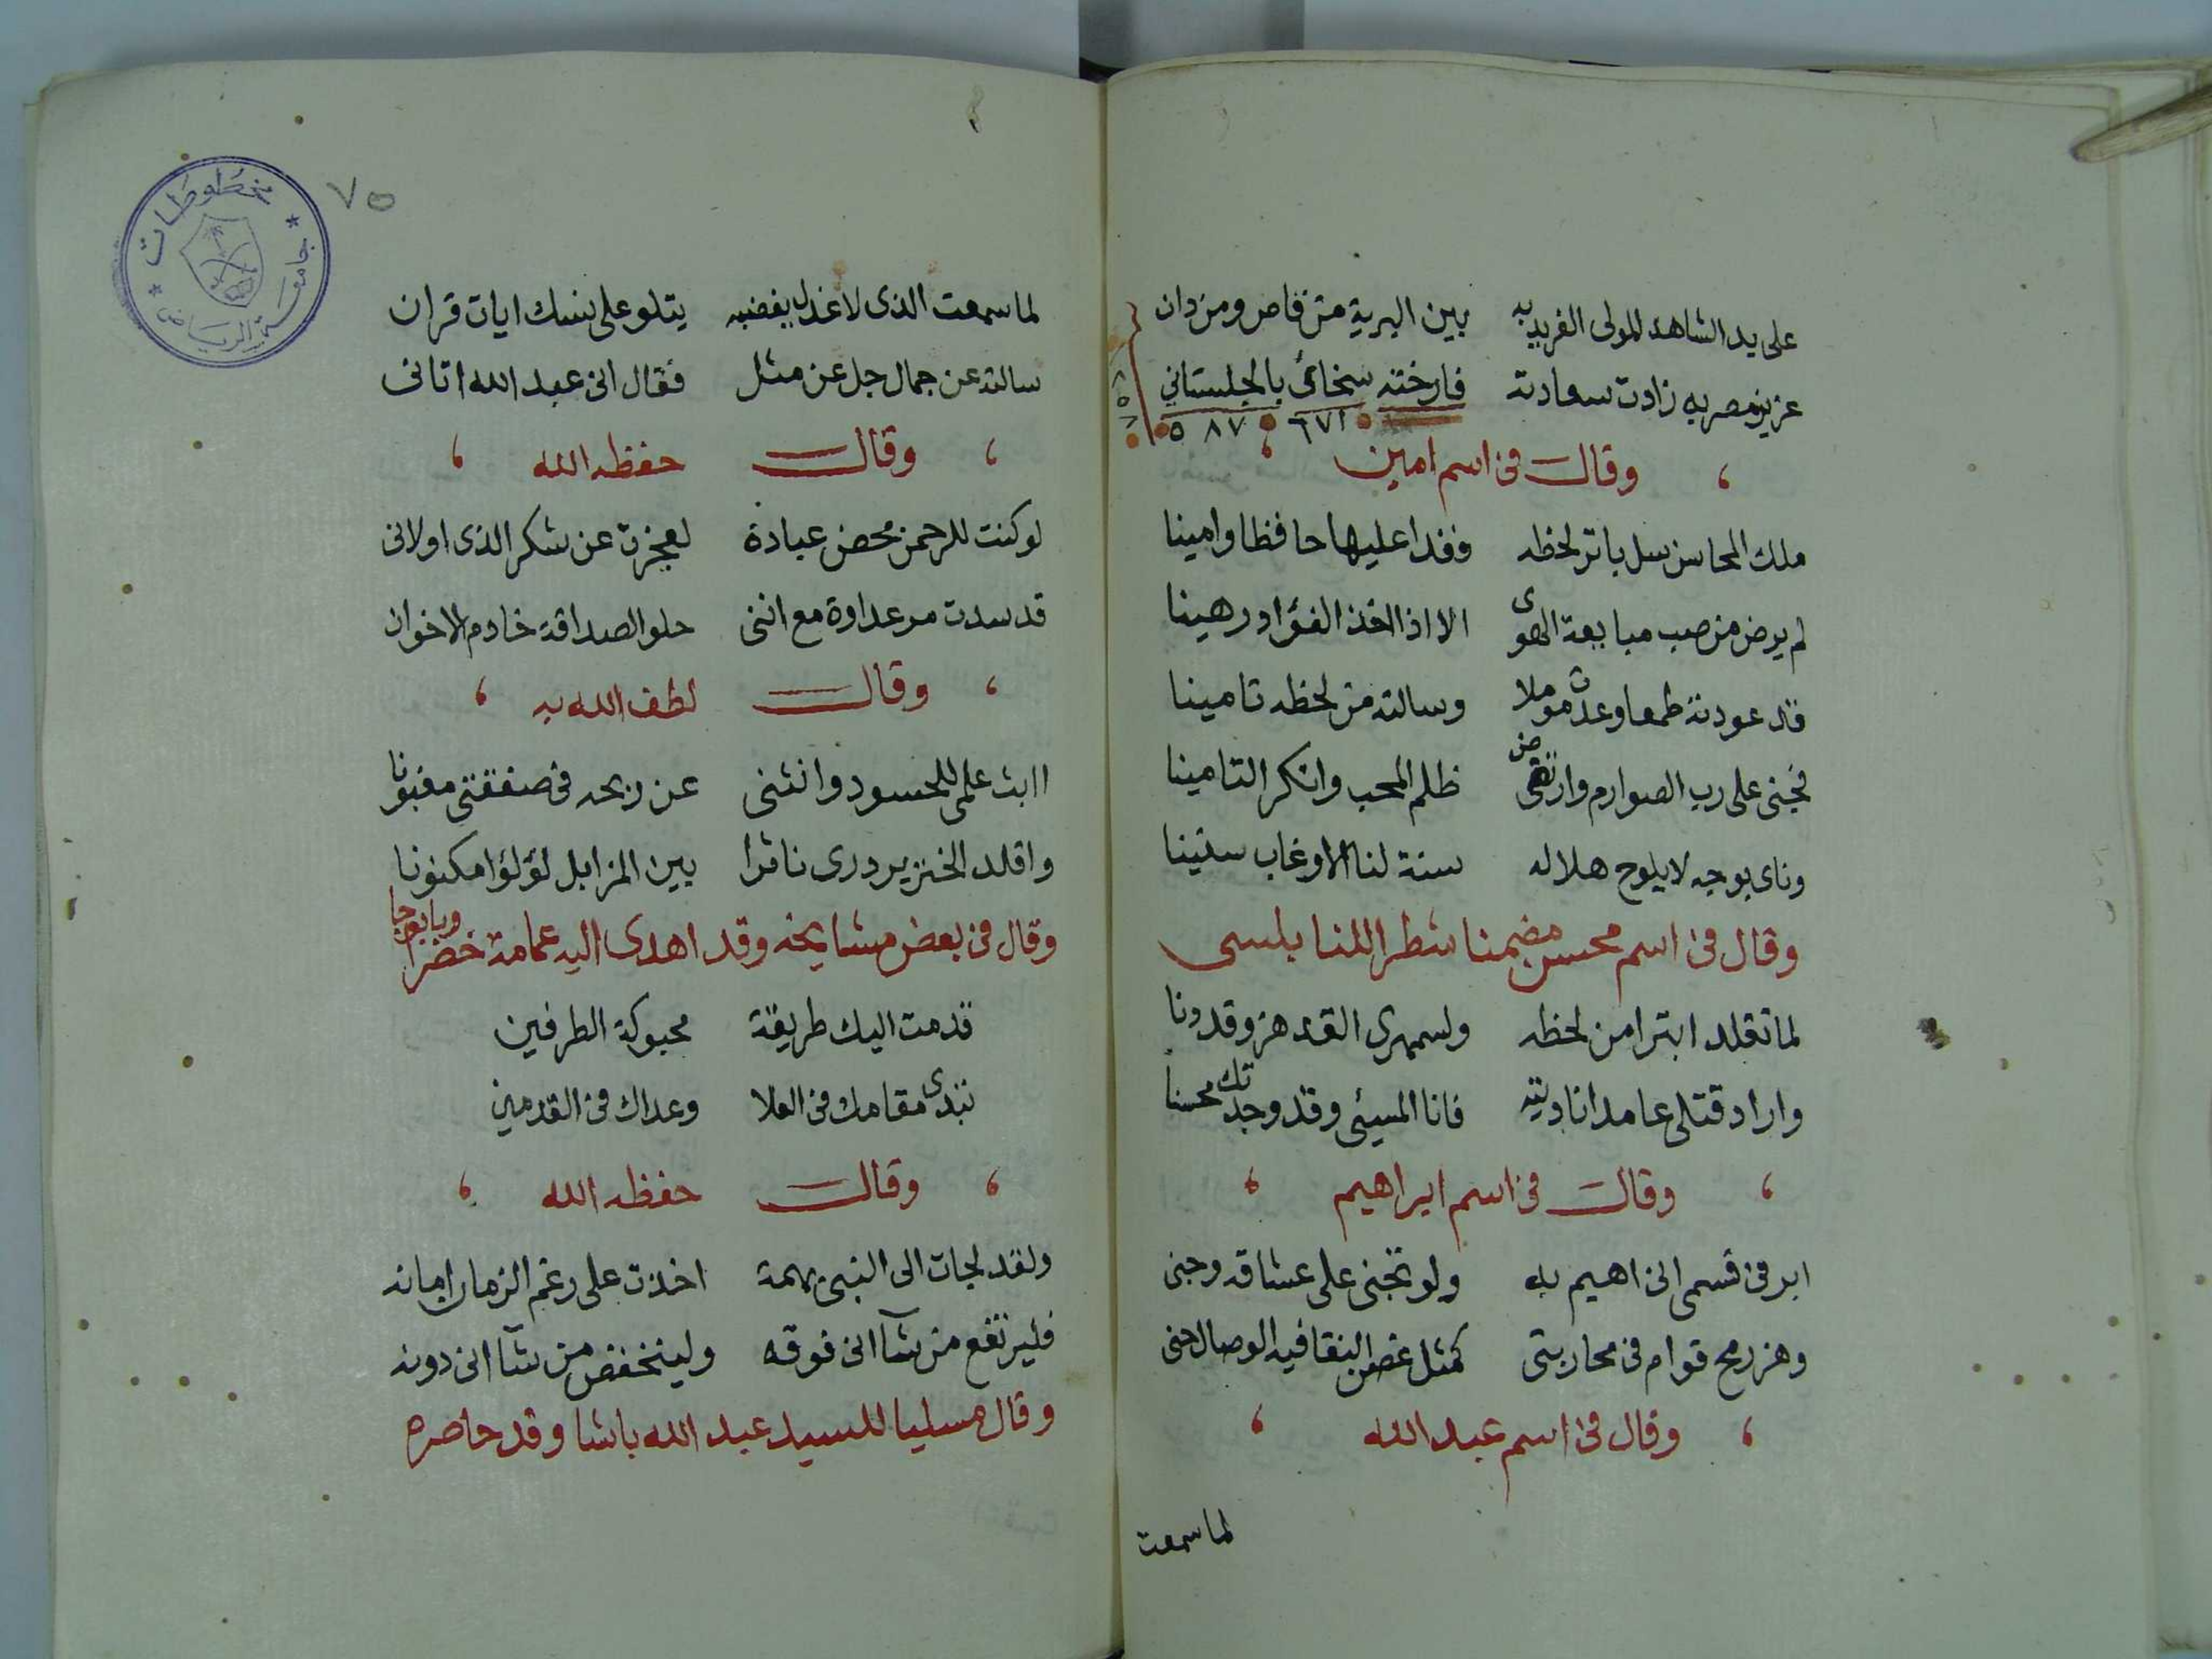 على يد الشاهد للمولى الفريد به بين البرية من قاص ومن دان
عزيز مصر به زادت سعادته فارخته سخائي بالجلستاني
٦٧١ ٥٨٧
وقال في اسم امين
ملك المحاسن سل باتر لحظه وغدا عليها حافظا وامينا
لم يرض من صب مبايعة الهوى الا اذا اخذ الفؤاد رهينا
قد عودته طمعا وعدت موملا وسالته من لحظه تامينا
فجنى على رب الصوارم وارتضى ظلم المحب وانكر التامينا
وناى بوجه لا يلوح هلاله سنة لنا الا وغاب سنينا
وقال في اسم محسن مضمنا شطرا للنابلسى
لما تقلد ابترا من لحظه ولسمهرى القد هز وقد دنا
واراد قتلى عامدا ناديته فانا المسيئ وقد وجدتك محسنا
وقال في اسم ابراهيم
ابر في قسمى انى اهيم به ولو تجنى على عشاقه وجنى
وهز رمح قوام في محاربتى كمثل غصن النقا فيه الوصال جنى
وقال في اسم عبد الله
لما سمعت
٧٥
مخطوطات
جامعة الرياض
لما سمعت الذى لا غدل يغضبه يتلو على نسك ايات قران
سالته عن جمال جل عن مثل فقال انى عبد الله اتانى
وقال حفظه الله
لو كنت للرحمن محض عبادة لعجزت عن شكر الذى اولانى
قد سدت مر عداوة مع اننى حلو الصداقة خادم الاخوان
وقال لطف الله به
اابث علمى للحسود وانثنى عن ربحه في صفقتى مغبونا
واقلد الخنزير درى ناثرا بين المزابل لؤلؤا مكنونا
وقال في بعض مشايخه وقد اهدى اليه عمامة خضرا وبابوجا
قدمت اليك طريقة محبوكة الطرفين
تبدى مقامك في العلا وعداك في القدمين
وقال حفظه الله
ولقد لجات الى النبى بهمة اخذت على رغم الزمان امانه
فليرتفع من شآ انى فوقه ولينخفض من شآ انى دونه
وقال مسليا للسيد عبد الله باشا وقد حاصره